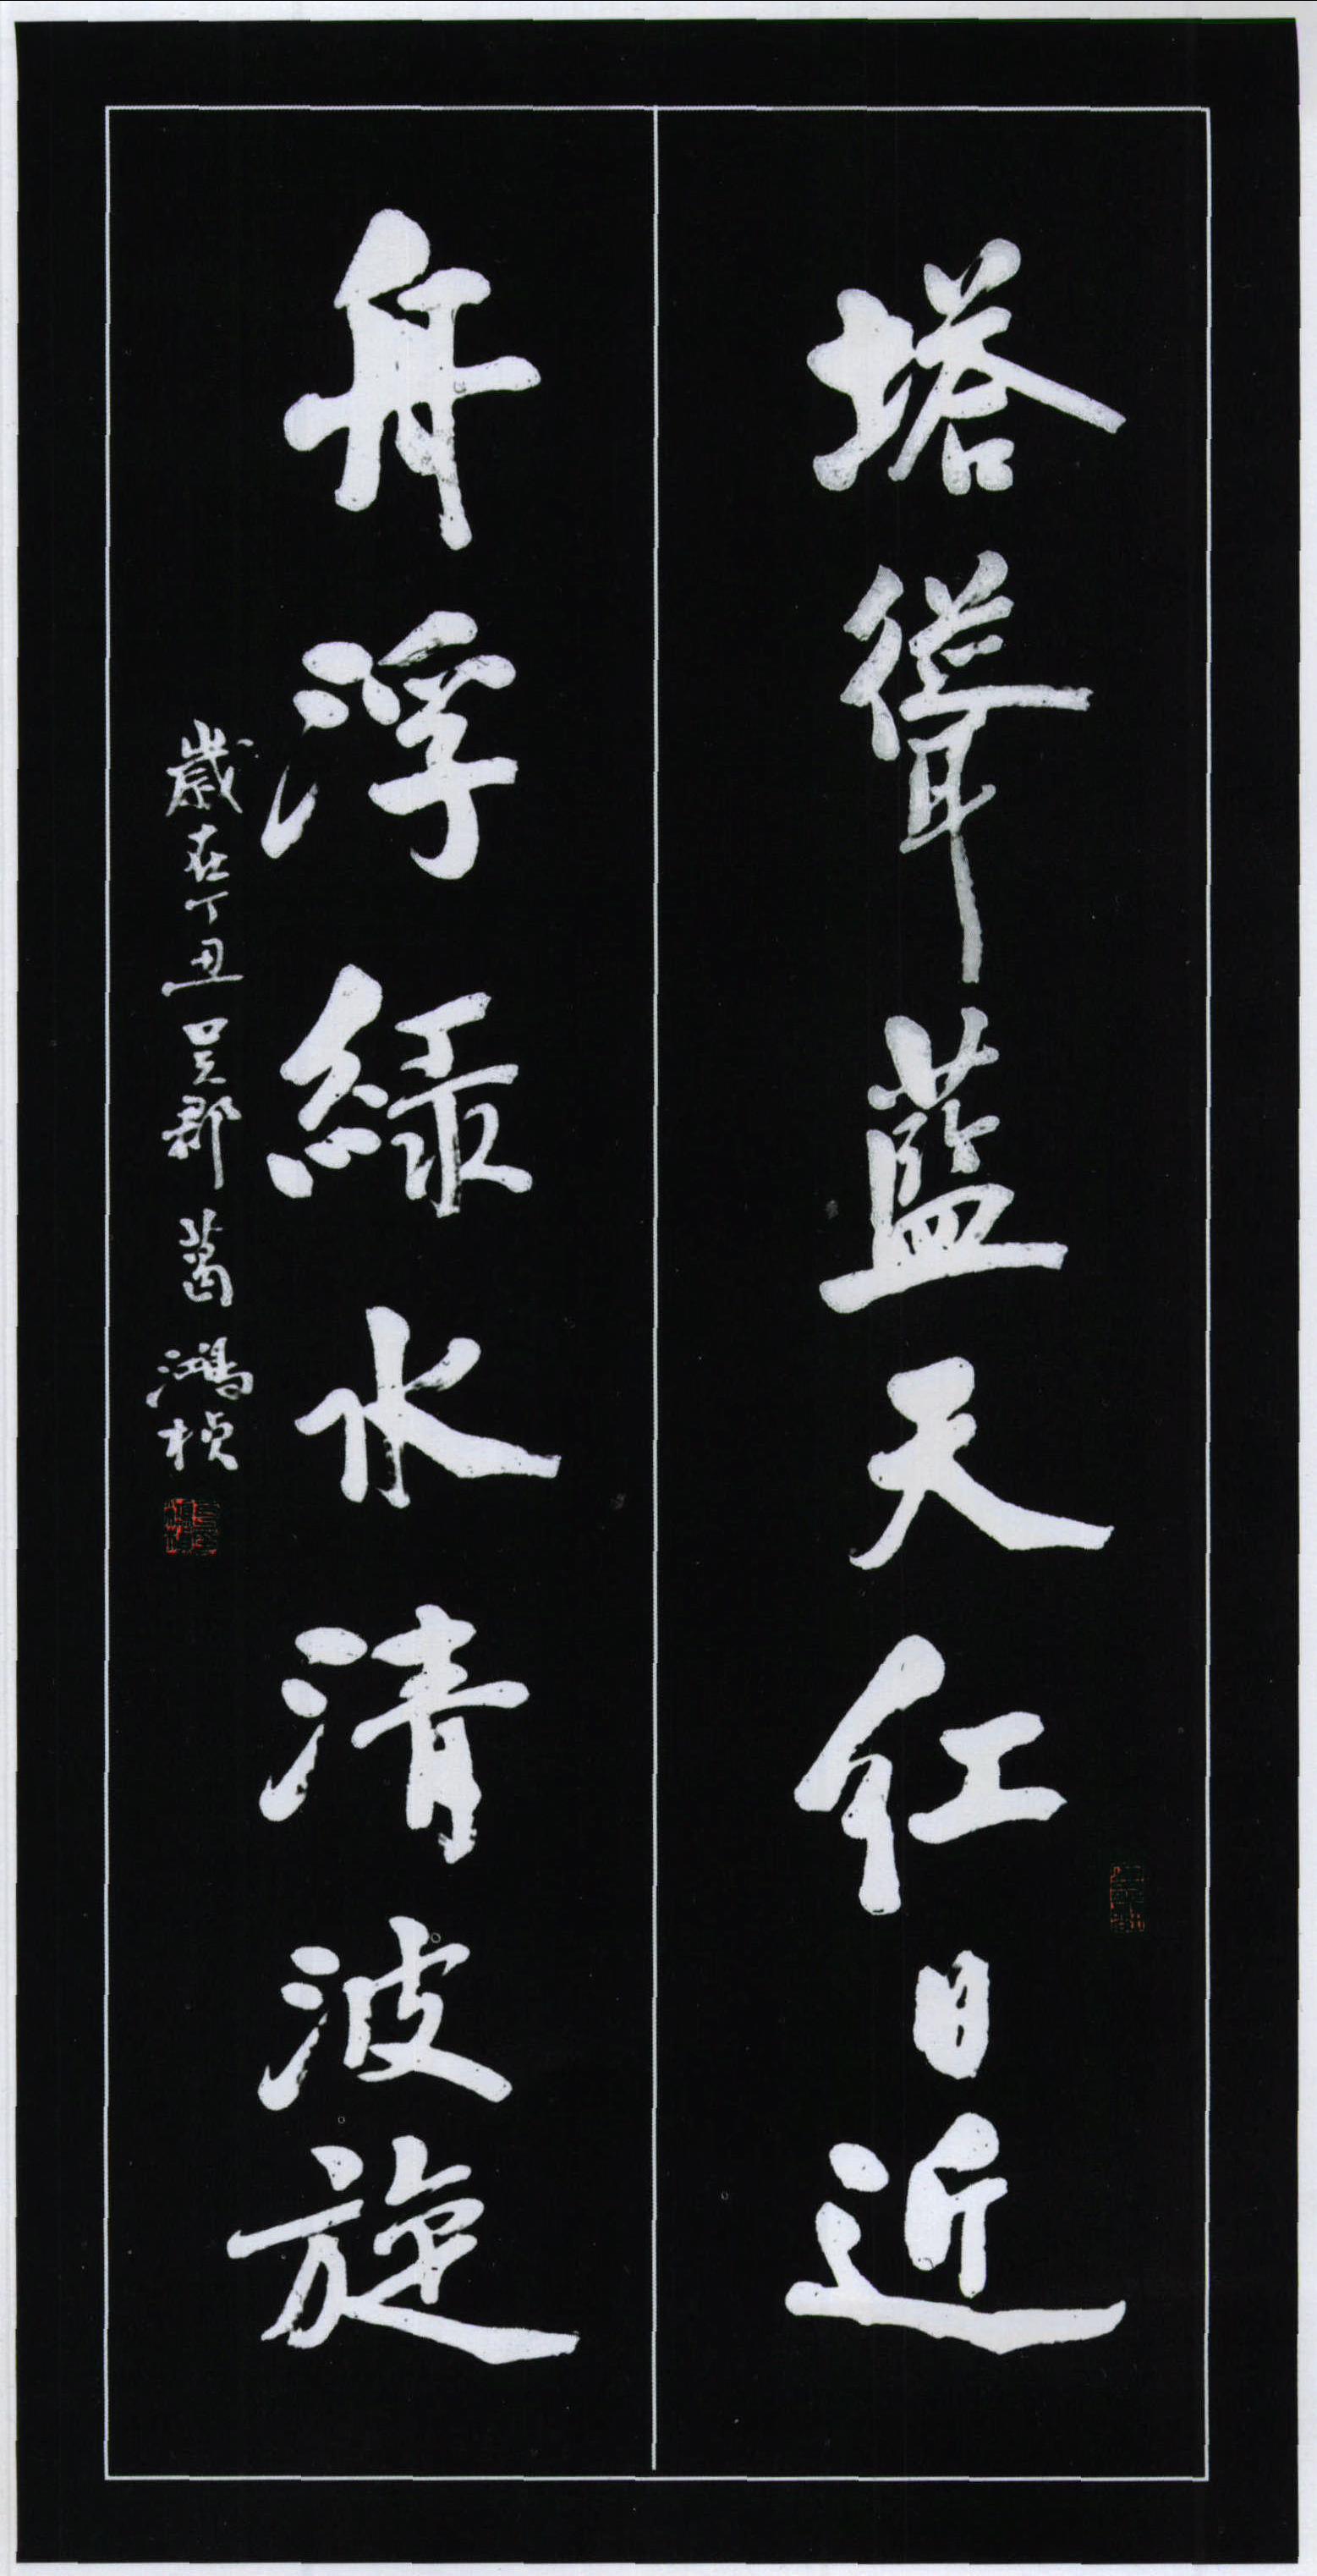 塔聳藍天红日近
舟浮緑水清波旋
歲在丁丑吴郡葛鴻楨